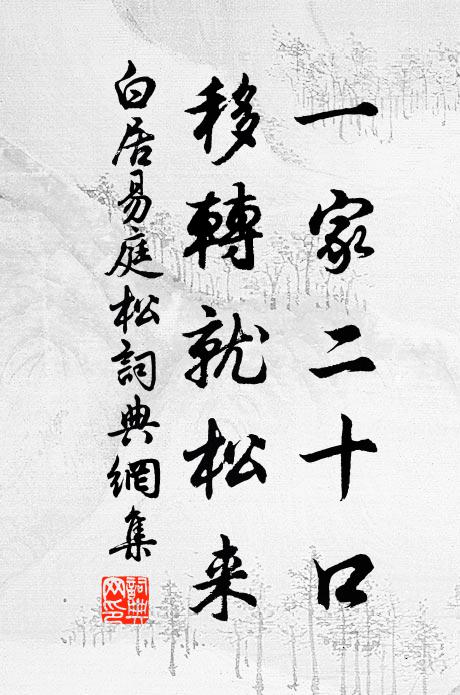 一家二十口
移轉就松来
白居易庭松詞典網集
詞典網印